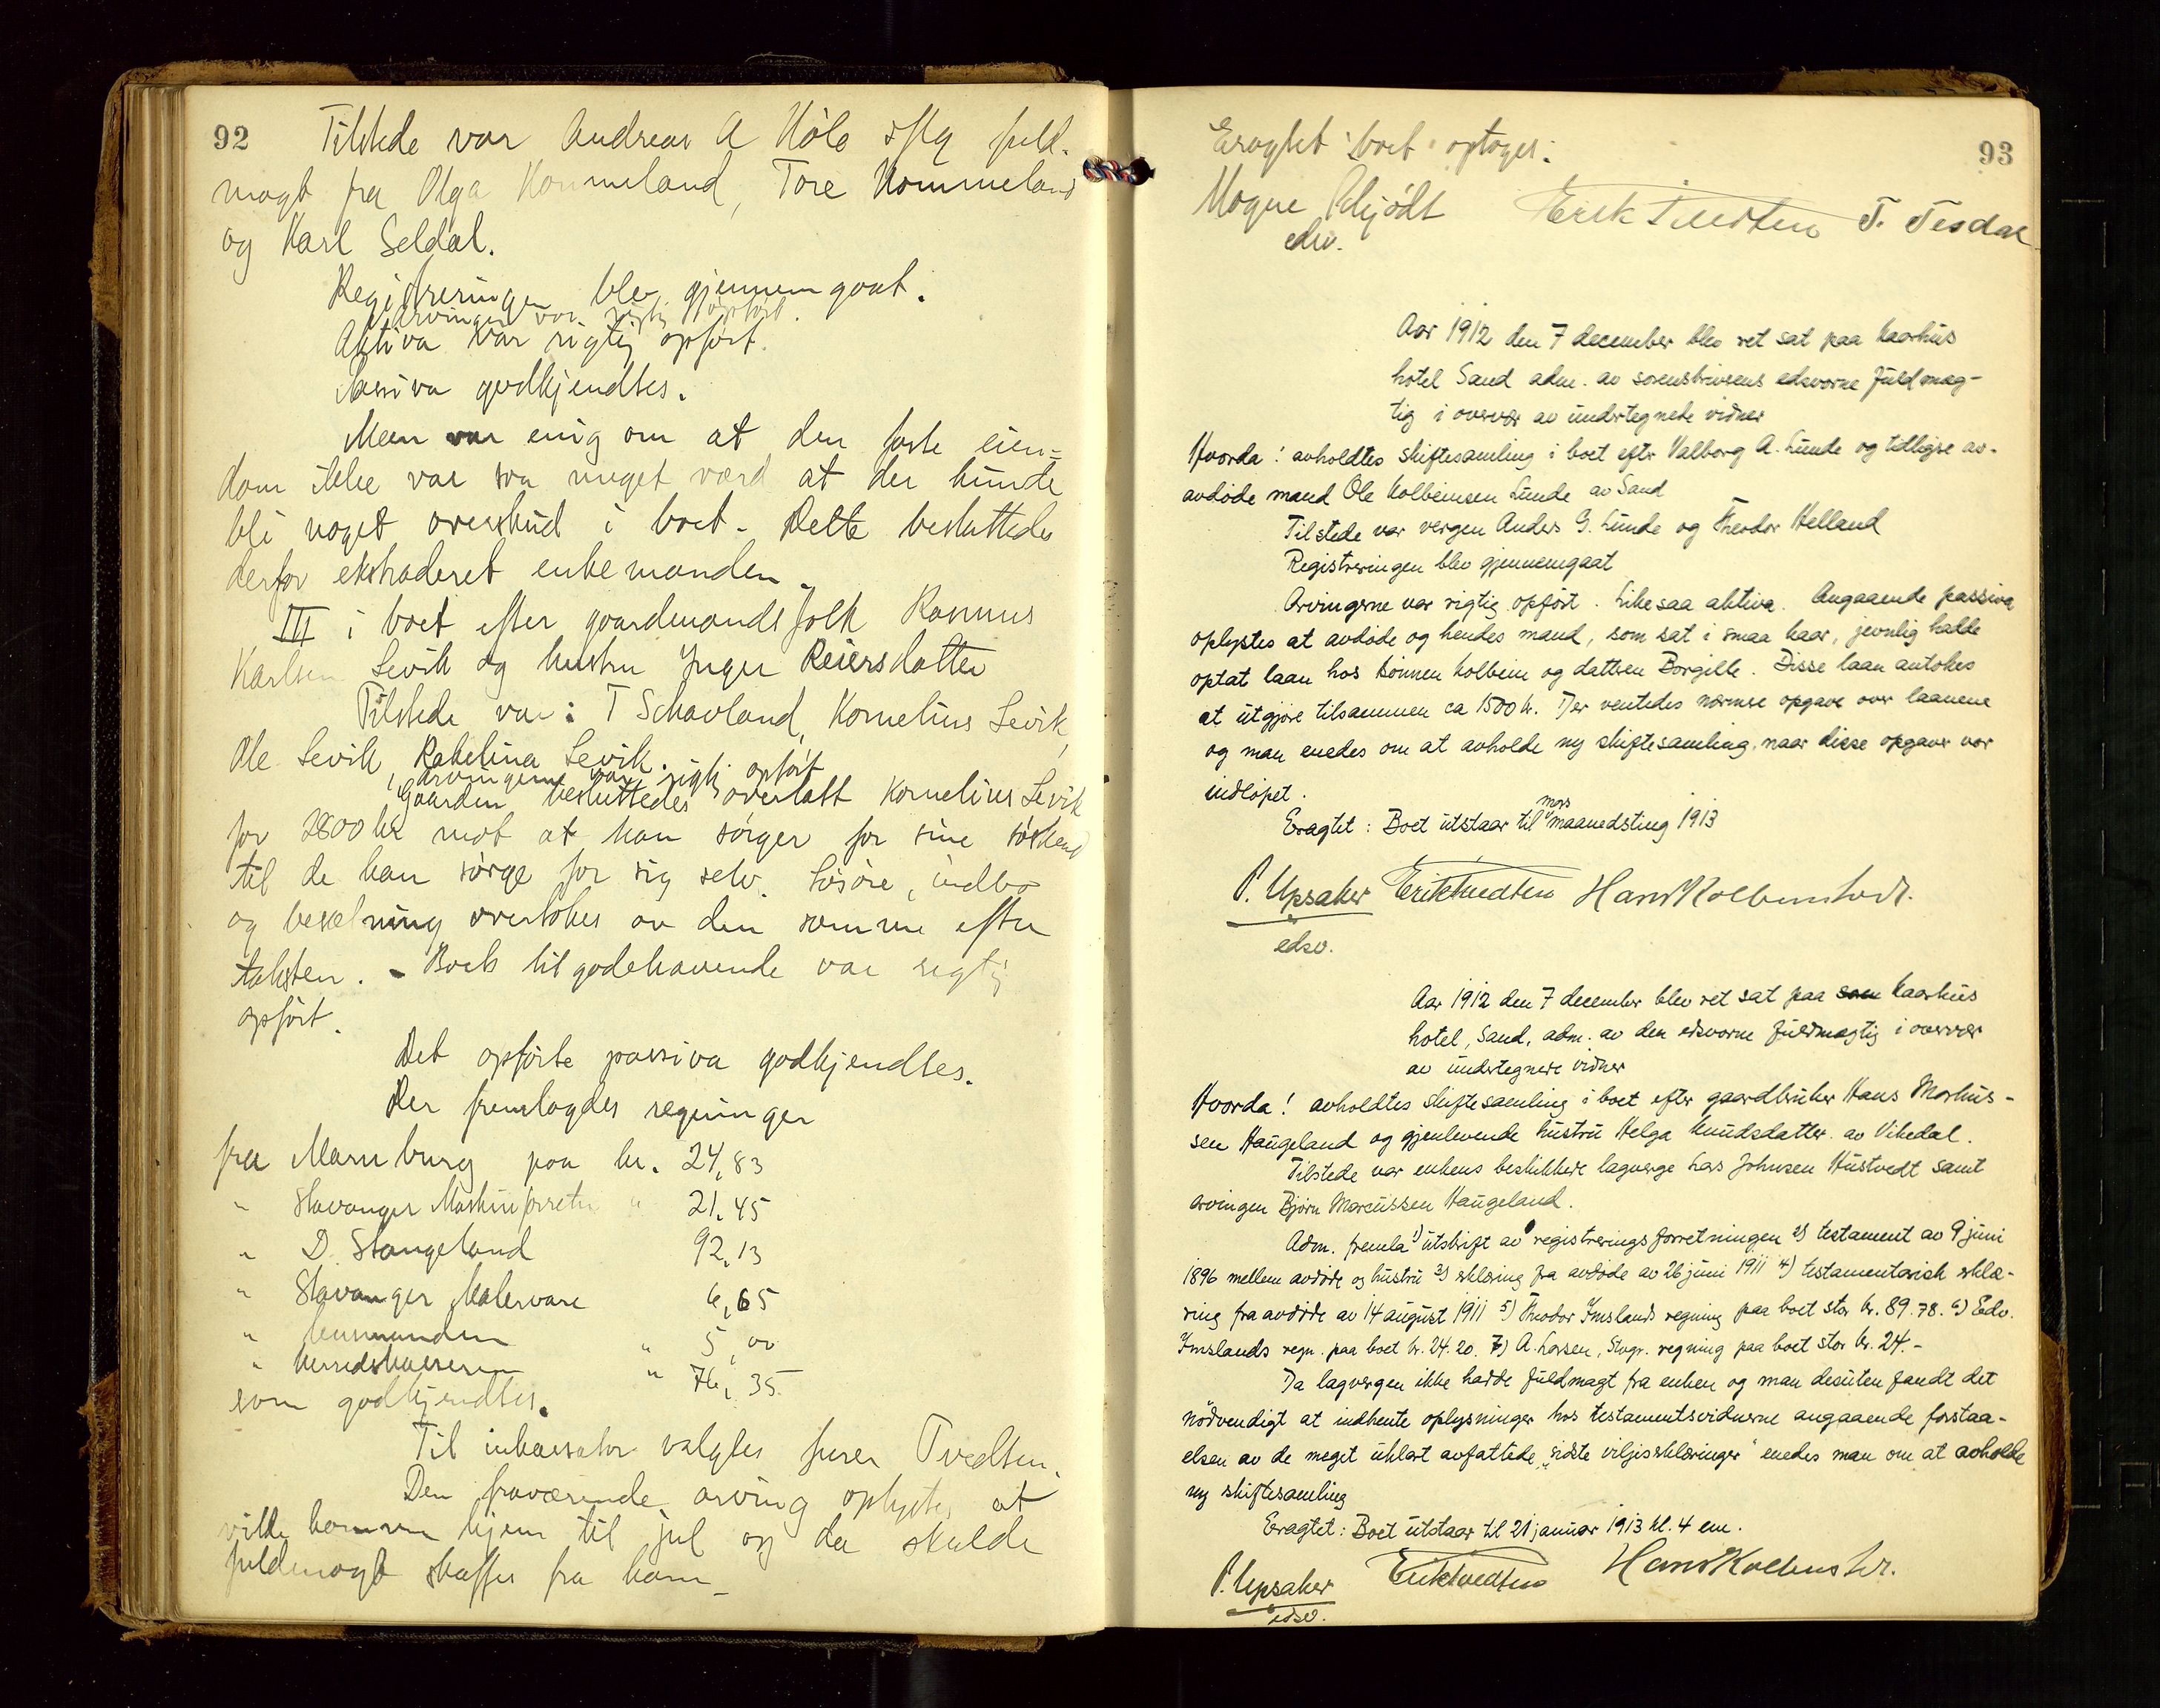 92
Tilstede var Andreas A Høle efter fuld-
magt fra Olga Hommeland, Tore Hommeland
og Karl Seldal.
Registreringen blev gjennemgaat.
Arvinger var rigtig opført.
Aktiva var rigtig opført.
Passiva godkjendtes.
Men var enig om at den faste eien=
dom ikke var saa meget værd at der kunde
bli noget overskud i boet. Dette besluttedes
derfor ekstraderet enkemanden.
III i boet efter gaardmandsfolk Rasmus
Karlsen Levik og hustru Inger Reiersdatter
Tilstede var: T Schavland, Kornelius Levik,
Ole Levik, Rakelina Levik.
Arvingerne var rigtig opført
Gaarden besluttedes overlatt Kornelius Levik
for 2800 kr mot at han sørger for sine søskend
til de kan sørge for sig selv. Løsøre, indbo
og besetning overtokes av den samme efter
taksten. - Boets tilgodehavende var rigtig
opført.
Det opførte passiva godkjendtes.
Der fremlagdes regninger
fra Marnburg paa kr. 24,83
" Stavanger Maskinforretn " 21,45
" D. Stangeland 92,13
" Stavanger Malervare 6,65
" lensmanden " 5,00
" herredskassereren " 76,35
som godkjendtes.
Til inkassator valgtes Tvedten.
Den fraværende arving oplystes at
ville komme hjem til jul og da skulde
fuldmagt skaffes fra ham_
93
Eragtet: boet optages.
Mogne Schjødt Erik Tvedten T. Tesdal
edsv.
Aar 1912 den 7 december blev ret sat paa Kaarhus
hotel Sand adm. av sorenskrivens edsvorne fuldmæg-
tig i overvær av undertegnede vidner
Hvorda! avholdtes skiftesamling i boet efter Valborg A. Lunde og tidligere av-
avdøde mand Ole Kolbeinsen Lunde av Sand
Tilstede var vergen Anders G. Lunde og Theodor Helland
Registreringen blev gjennemgaat
Arvingerne var rigtig opført. Likesaa aktiva. Angaaende passiva
oplystes at avdøde og hendes mand, som sat i smaa kaar, jevnlig hadde
optat laan hos sønnen Kolbein og datteren Borgille. Disse laan antokes
at utgjøre tilsammen ca 1500 kr. Der ventedes nærmere opgave over laanene
og man enedes om at avholde ny skiftesamling, naar disse opgaver var
indløpet.
Eragtet: Boet utstaar til mars maanedsting 1913
P. Upsaker Erik Tvedten Hans Kolbenstvedt.
edsv.
Aar 1912 den 7 december blev ret sat paa som Kaarhus
hotel, Sand, adm. av den edsvorne fuldmægtig i overvær
av undertegnede vidner
Hvorda! avholdtes skiftesamling i boet efter gaardbruker Hans Markus-
sen Haugeland og gjenlevende hustru Helga Knudsdatter av Vikedal.
Tilstede var enkens beskikkede lagverge Lars Johnsen Hustvedt samt
arvingen Bjørn Marcussen Haugeland.
Adm. fremla 1) utskrift av registreringsforretningen 2) testament av 9 juni
1896 mellem avdøde og hustru 3) erklæring fra avdøde av 26 juni 1911 4) testamentarisk erklæ-
ring fra avdøde av 14 august 1911 5) Theodor Imslands regning paa boet stor kr. 89.78. 6) Edv.
Imslands regn. paa boet kr. 24.20. 7) A. Larsen, Stvgr. regning paa boet stor kr. 24.-
Da lagvergen ikke hadde fuldmagt fra enken og man desuten fandt det
nødvendigt at indhente oplysninger hos testamentsvidnerne angaaende forstaa-
elsen av de meget uklart avfattede "sidste viljeserklæringer" enedes man om at avholde
ny skiftesamling
Eragtet: Boet utstaar til 21 januar 1913 kl. 4 em.
P. Upsaker Erik Tvedten Hans Kolbenstvedt.
edsv.